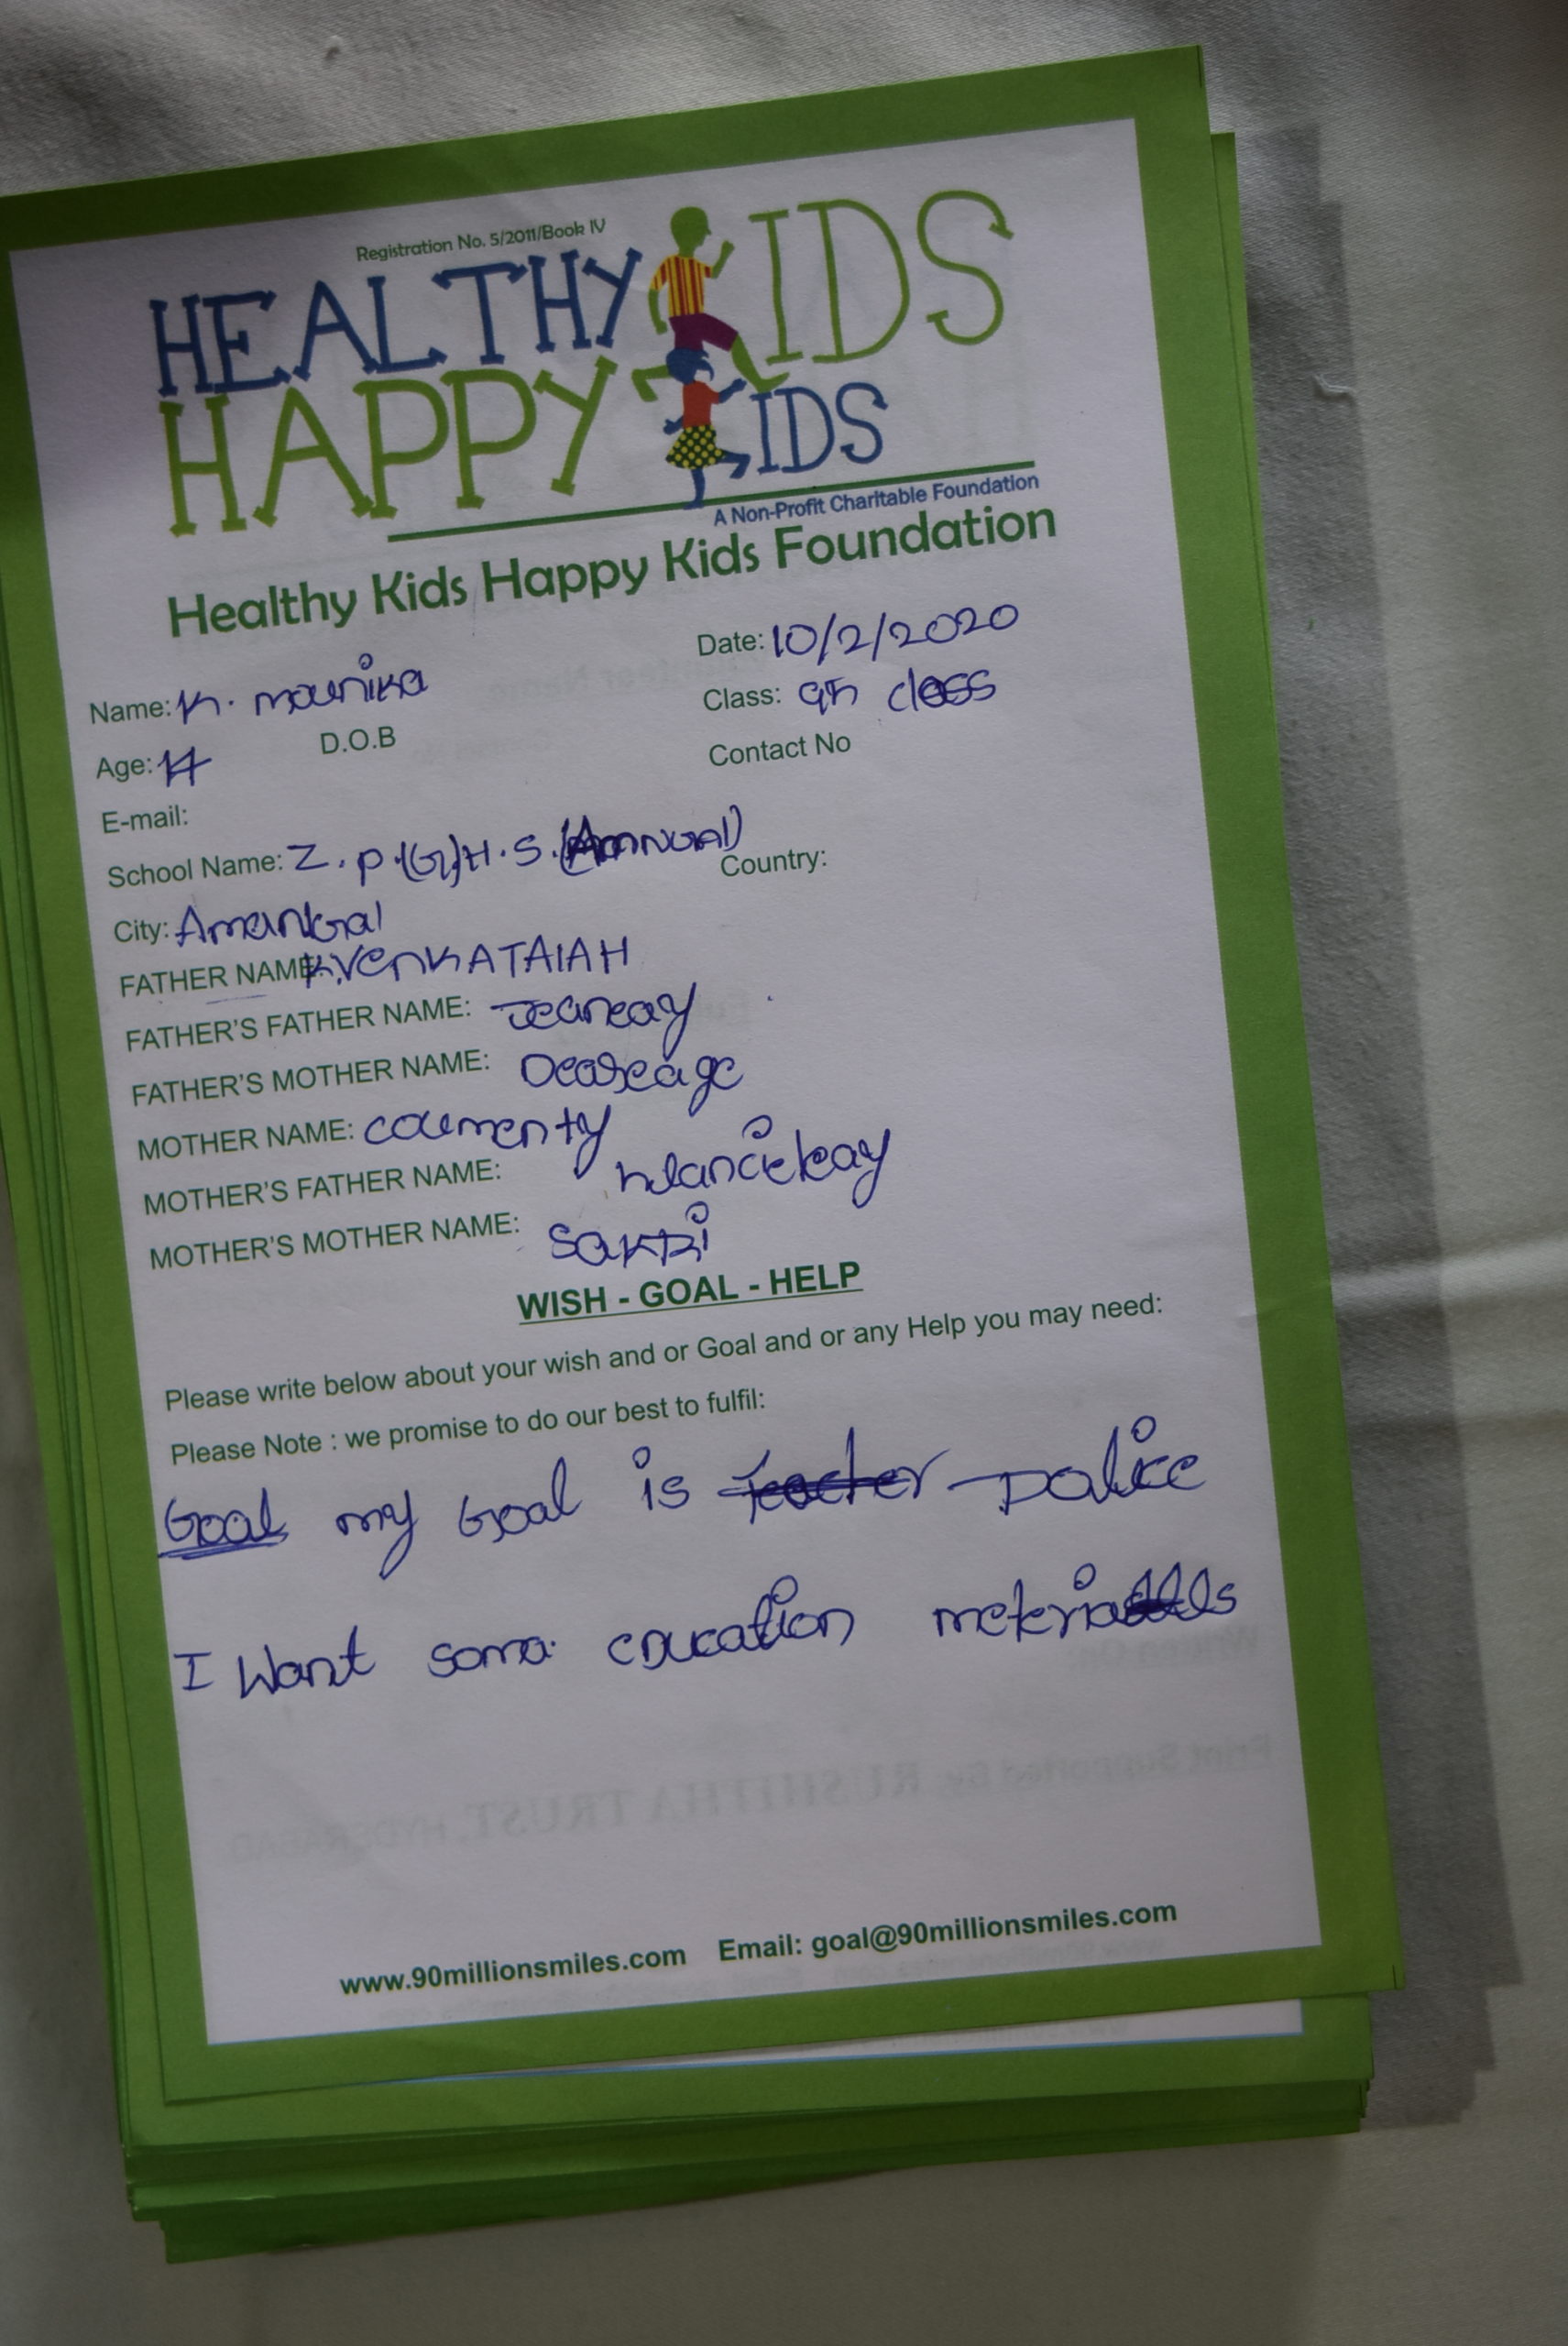 Registration No. 5/2011/Book IV
HEALTHY KIDS
HAPPY KIDS
A Non-Profit Charitable Foundation
Healthy Kids Happy Kids Foundation
Date: 10/2/2020
Name: K. mounika
Class: 9th class
Age: 14 D.O.B
Contact No
E-mail:
School Name: Z.P.(G)H.S.
Country:
City: Amangal
FATHER NAME: K.VenKATAIAH
FATHER'S FATHER NAME:
FATHER'S MOTHER NAME:
MOTHER NAME:
MOTHER'S FATHER NAME:
MOTHER'S MOTHER NAME:
WISH - GOAL - HELP
Please write below about your wish and or Goal and or any Help you may need:
Please Note : we promise to do our best to fulfil:
Goal my Goal is Teacher police
I Want soma education
Print Supported By RUSHITHA TRUST, HYDERABAD
www.90millionsmiles.com Email: goal@90millionsmiles.com